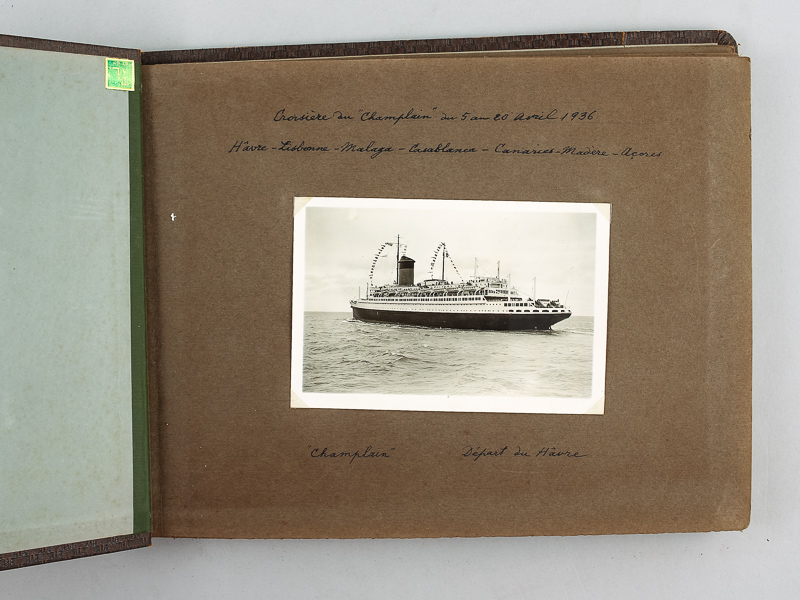 Croisière du "Champlain" du 5 au 20 Avril 1936
Hâvre - Lisbonne - Malaga - Casablanca - Canaries - Madère - Açores
"Champlain" Départ du Hâvre